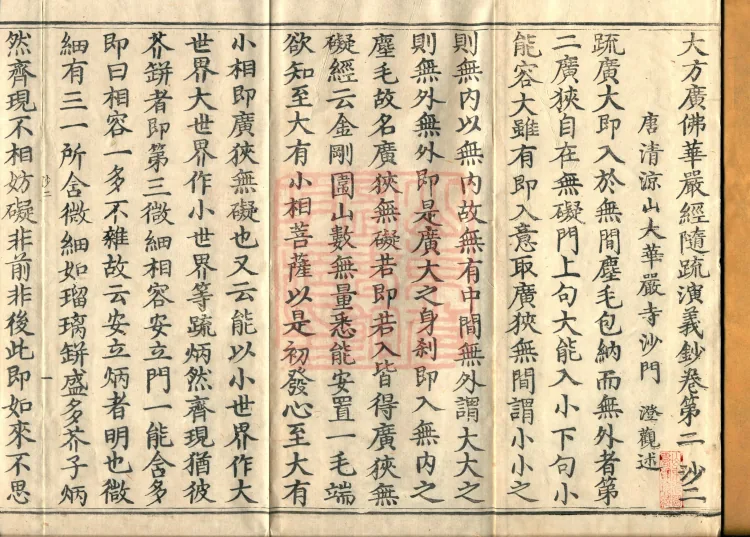 大方廣佛華嚴經隨疏演義鈔卷第二 沙二
唐清涼山大華嚴寺沙門 澄觀述
疏廣大即入於無間塵毛包納而無外者第
二廣狹自在無礙門上句大能入小下句小
能容大雖有即入意取廣狹無間謂小小之
則無內以無內故無有中間無外謂大大之
則無外無外即是廣大之身刹即入無內之
塵毛故名廣狹無礙若即若入皆得廣狹無
礙經云金剛圍山數無量悉能安置一毛端
欲知至大有小相菩薩以是初發心至大有
小相即廣狹無礙也又云能以小世界作大
世界大世界作小世界等疏炳然齊現猶彼
芥缾者即第三微細相容安立門一能含多
即曰相容一多不雜故云安立炳者明也微
細有三一所含微細如瑠璃缾盛多芥子炳
沙二
一
然齊現不相妨礙非前非後此即如來不思